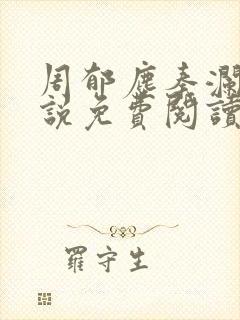 周郁塵秦瀾
説免費閱讀
羅守生